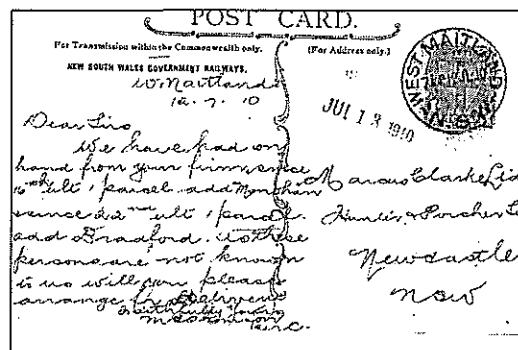 POST CARD.
For Transmission within the Commonwealth only.
(For Address only.)
NEW SOUTH WALES GOVERNMENT RAILWAYS.
WEST MAITLAND
N.S.W
W. Maitland
12. 7. 10
JUL 13 1910
Dear Sirs
We have had on
hand from your firm since
ult 1 parcel add
since 22nd ult 1 parcel
add Bradford. as these
persons are not known
to us will you please
arrange for delivery
Faithfully Yours
Marcus Clarke Ltd
Hunter &
Newcastle
NSW